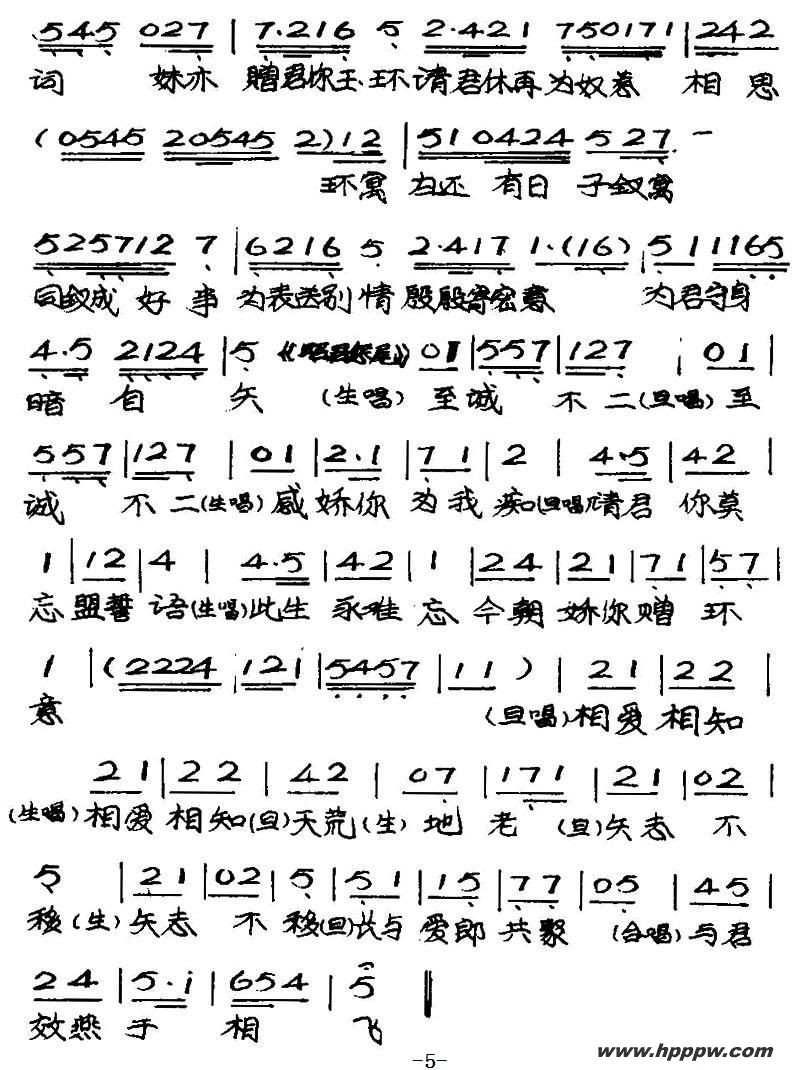 545 027 | 7·216 5 2·421 750171 | 242
词 妹亦 赠君你玉环请君休再为奴惹 相思
(0545 20545 2)12 | 510424 527·一
环寓 为还 有日 子钗寓
525712 7 | 6216 5 2·417 1·(16) | 5 11165
同钗成 好事 为表送别情 殷殷寄密意 为君守身
4·5 2124 | 5 01 | 557 | 127 | 01 |
暗自矢 (生唱) 至诚 不二(旦唱)至
557 | 127 | 01 | 2·1 | 71 | 2 | 4·5 | 42 |
诚 不二(生唱)感娇你 为我痴(旦唱)请君 你莫
1 | 12 | 4 | 4·5 | 42 | 1 | 24 | 21 | 71 | 57 |
忘盟誓语(生唱)此生 永难忘 今朝娇你赠环
1 | (2224 | 121 | 5457 | 11 ) | 21 | 22 |
意 (旦唱)相爱相知
21 | 22 | 42 | 07 | 171 | 21 | 02 |
(生唱)相爱相知(旦)天荒(生)地老 (旦)矢志不
5 | 21 | 02 | 5 | 51 | 15 | 77 | 05 | 45 |
移(生)矢志不移(旦)长与爱郎共聚 (合唱)与君
24 | 5·i | 654 | 5 ‖
效燕于相飞
-5-
www.hpppw.com